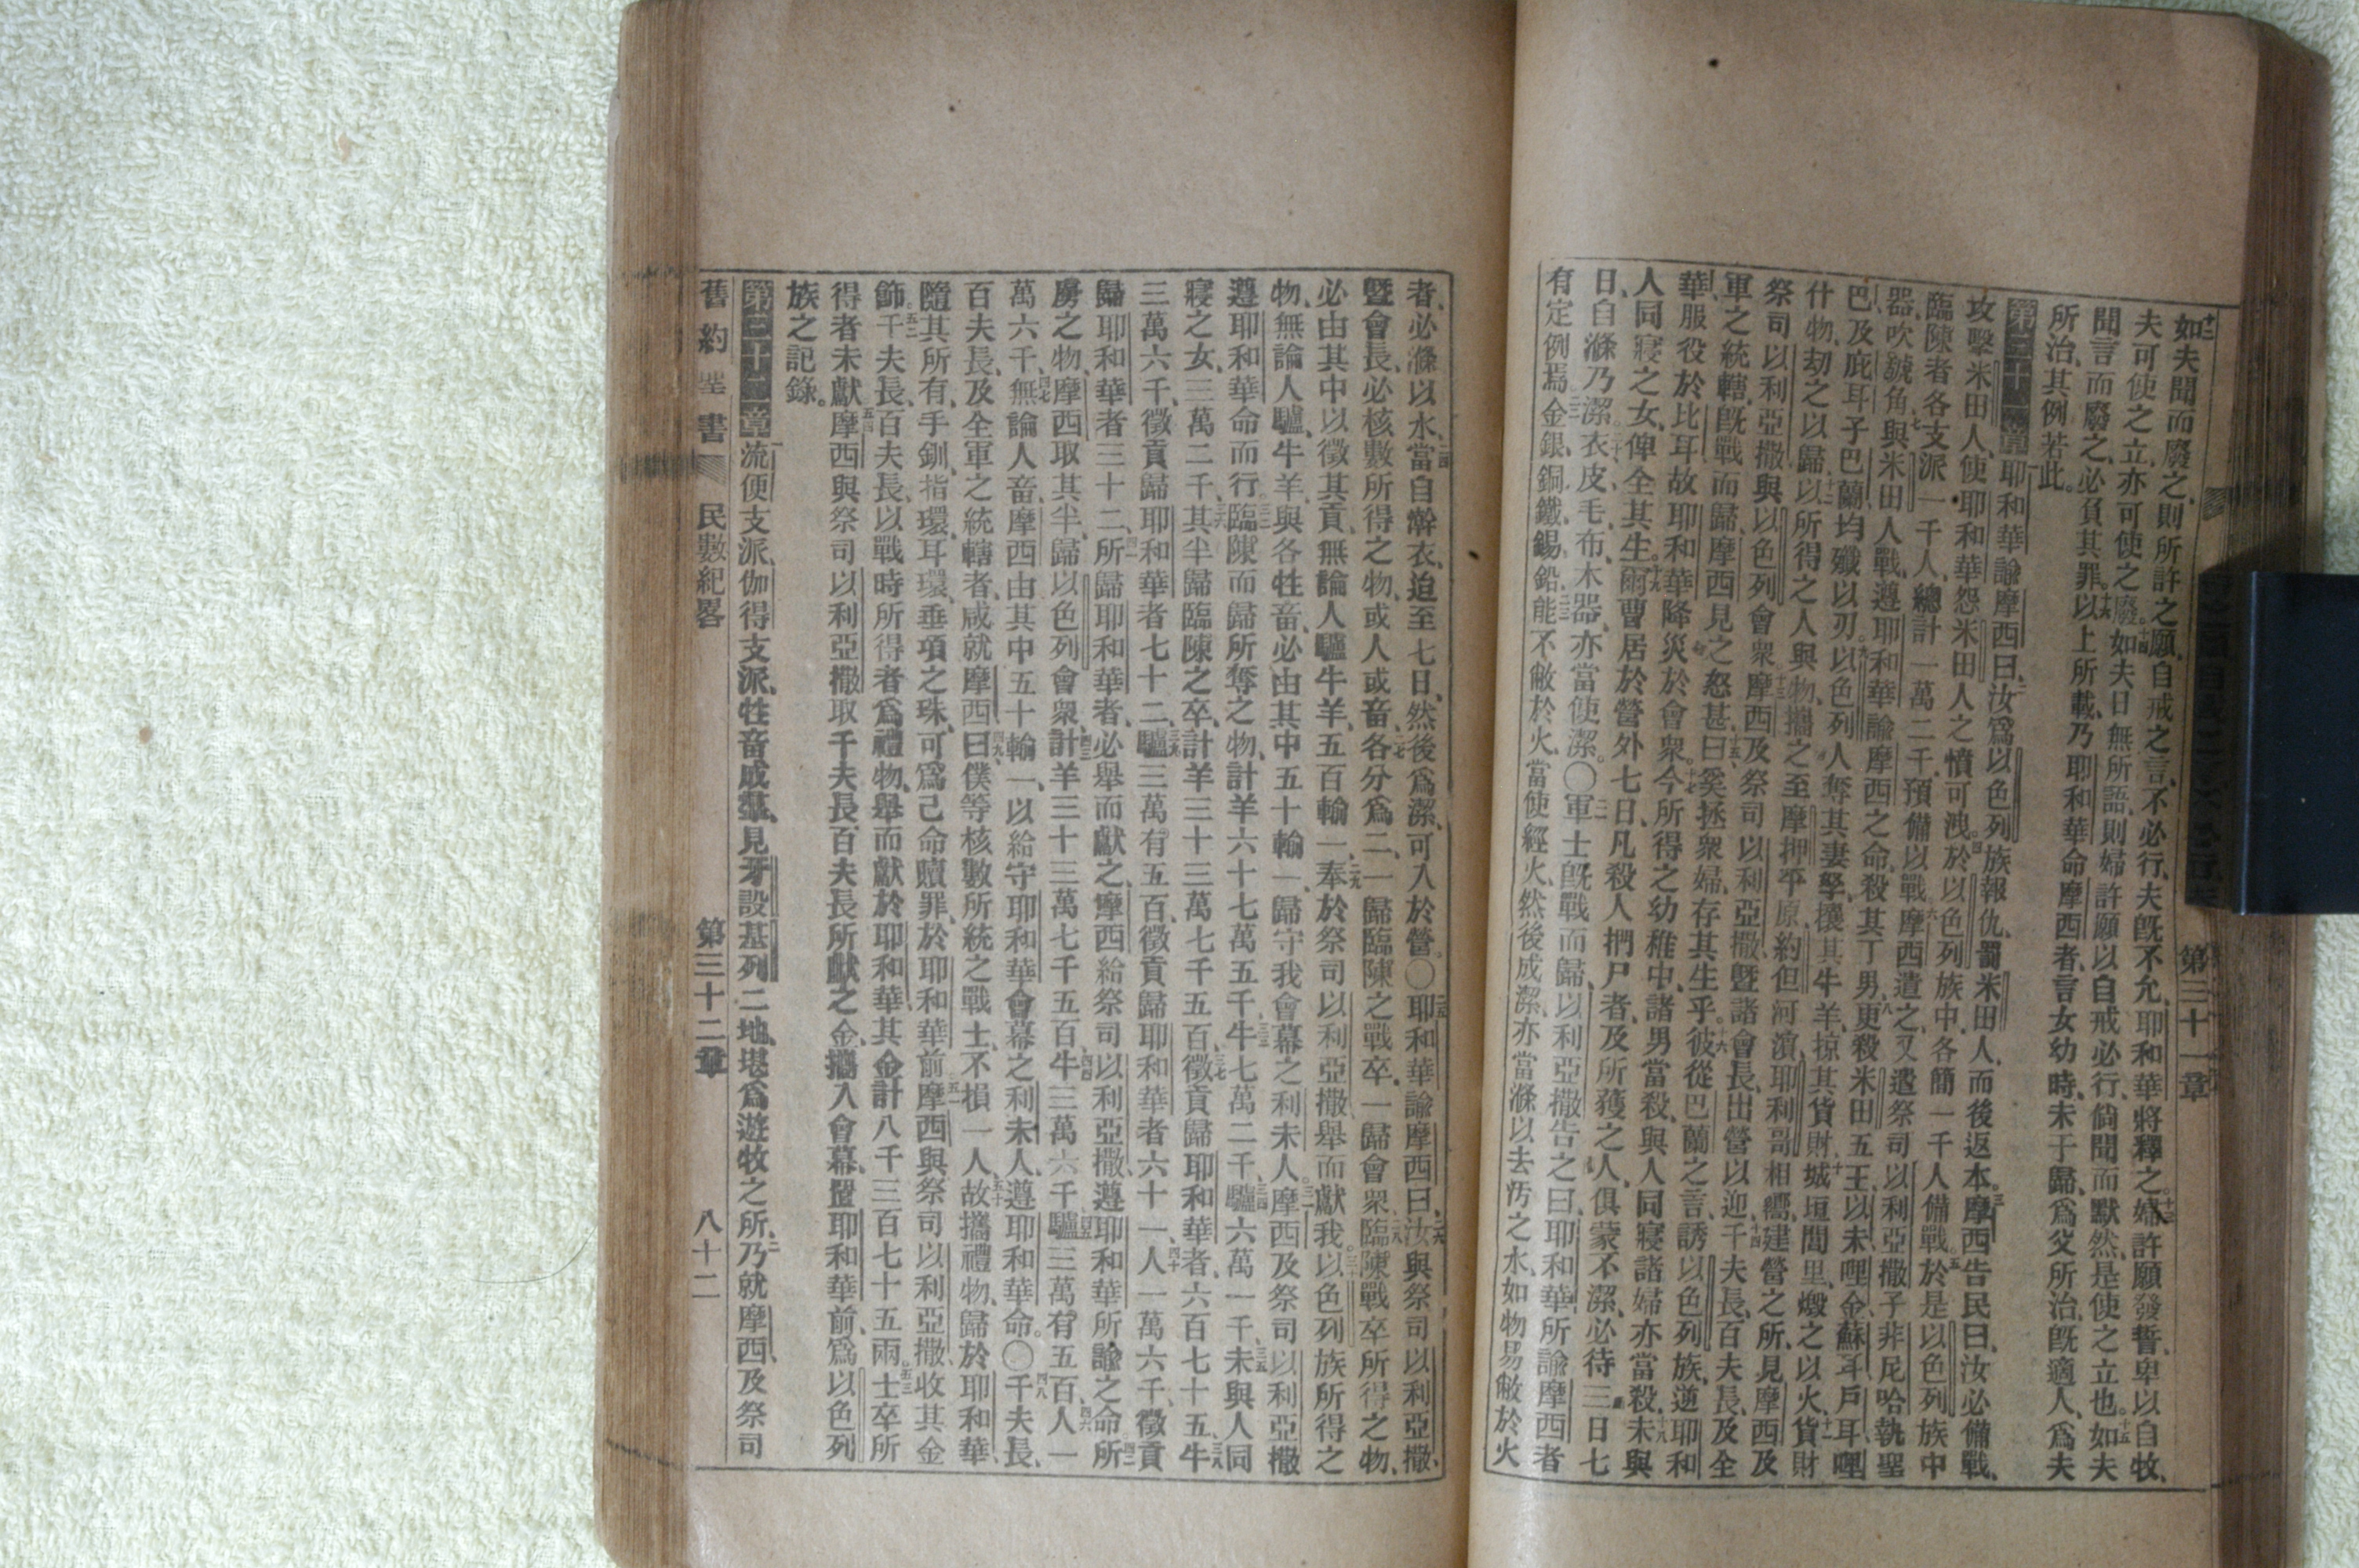 第三十一章
十二如夫聞而廢之、則所許之願、自戒之言、不必行、夫旣不允、耶和華將釋之。十三婦許願發誓、卑以自牧、
夫可使之立、亦可使之廢。十四如夫日無所語、則婦許願以自戒必行、倘聞而默然、是使之立也。十五如夫
聞言而廢之、必負其罪。十六以上所載、乃耶和華命摩西者、言女幼時、未于歸、爲父所治、旣適人、爲夫
所治、其例若此。
第三十一章 一耶和華諭摩西曰、二汝爲以色列族報仇、罰米田人、而後返本。三摩西告民曰、汝必備戰、
攻擊米田人、使耶和華怨米田人之憤可洩。四於以色列族中、各簡一千人備戰。五於是以色列族中
臨陳者、各支派一千人、總計一萬二千、預備以戰。六摩西遣之、又遣祭司以利亞撒子非尼哈、執聖
器、吹號角、七與米田人戰、遵耶和華諭摩西之命、殺其丁男、八更殺米田五王、以未、哩金、蘇耳、戶耳、哩
巴、及庇耳子巴蘭、均殲以刃。九以色列人奪其妻孥、攘其牛羊、掠其貨財、十城垣閭里、燬之以火、十一貨財
什物、劫之以歸、十二以所得之人與物、攜之至摩押平原、約但河濱、耶利哥相嚮、建營之所、見摩西及
祭司以利亞撒、與以色列會衆。十三摩西及祭司以利亞撒、曁諸會長、出營以迎。十四千夫長、百夫長、及全
軍之統轄、旣戰而歸、摩西見之怒甚、十五曰、奚拯衆婦、存其生乎。十六彼從巴蘭之言、誘以色列族、逆耶和
華、服役於比耳、故耶和華降災於會衆。十七今所得之幼稚中、諸男當殺、與人同寢諸婦亦當殺、十八未與
人同寢之女、俾全其生。十九爾曹居於營外七日、凡殺人捫尸者、及所獲之人、俱蒙不潔、必待三日七
日、自滌乃潔。二十衣、皮、毛、布、木器、亦當使潔。〇二一軍士旣戰而歸、以利亞撒告之曰、耶和華所諭摩西者
有定例焉。二二金、銀、銅、鐵、錫、鉛、二三能不敝於火、當使經火、然後成潔、亦當滌以去汚之水、如物易敝於火
者、必滌以水、二四當自澣衣、迨至七日、然後爲潔、可入於營。〇二五耶和華諭摩西曰、二六汝與祭司以利亞撒、
曁會長、必核數所得之物、或人或畜、二七各分爲二、一歸臨陳之戰卒、一歸會衆、二八臨陳戰卒所得之物、
必由其中以徵其貢、無論人驢牛羊、五百輸一、二九奉於祭司以利亞撒、舉而獻我。三十以色列族所得之
物、無論人驢牛羊、與各牲畜、必由其中五十輸一、歸守我會幕之利未人。三一摩西及祭司以利亞撒
遵耶和華命而行。三二臨陳而歸所奪之物、計羊六十七萬五千、三三牛七萬二千、三四驢六萬一千、三五未與人同
寢之女、三萬二千、三六其半歸臨陳之卒、計羊三十三萬七千五百、三七徵貢歸耶和華者、六百七十五、三八牛
三萬六千、徵貢歸耶和華者七十二、三九驢三萬有五百、徵貢歸耶和華者六十一、四十人一萬六千、徵貢
歸耶和華者三十二、四一所歸耶和華者、必舉而獻之、摩西給祭司以利亞撒、遵耶和華所諭之命、四二所
虜之物、摩西取其半、歸以色列會衆、四三計羊三十三萬七千五百、四四牛三萬六千、四五驢三萬有五百、四六人一
萬六千、四七無論人畜、摩西由其中五十輸一、以給守耶和華會幕之利未人、遵耶和華命。〇四八千夫長、
百夫長、及全軍之統轄者、咸就摩西、四九曰、僕等核數所統之戰士、不損一人、五十故攜禮物、歸於耶和華、
隨其所有、手釧、指環、耳環、垂項之珠、可爲己命贖罪、於耶和華前、五一摩西與祭司以利亞撒、收其金
飾。五二千夫長、百夫長、以戰時所得者爲禮物、舉而獻於耶和華、其金計八千三百七十五兩。五三士卒所
得者未獻、五四摩西與祭司以利亞撒、取千夫長、百夫長所獻之金、攜入會幕、置耶和華前、爲以色列
族之記錄。
第三十二章 一流便支派、伽得支派、牲畜成羣、見牙設、基列二地、堪爲遊牧之所、二乃就摩西、及祭司
舊約聖書 民數紀畧 第三十二章 八十二